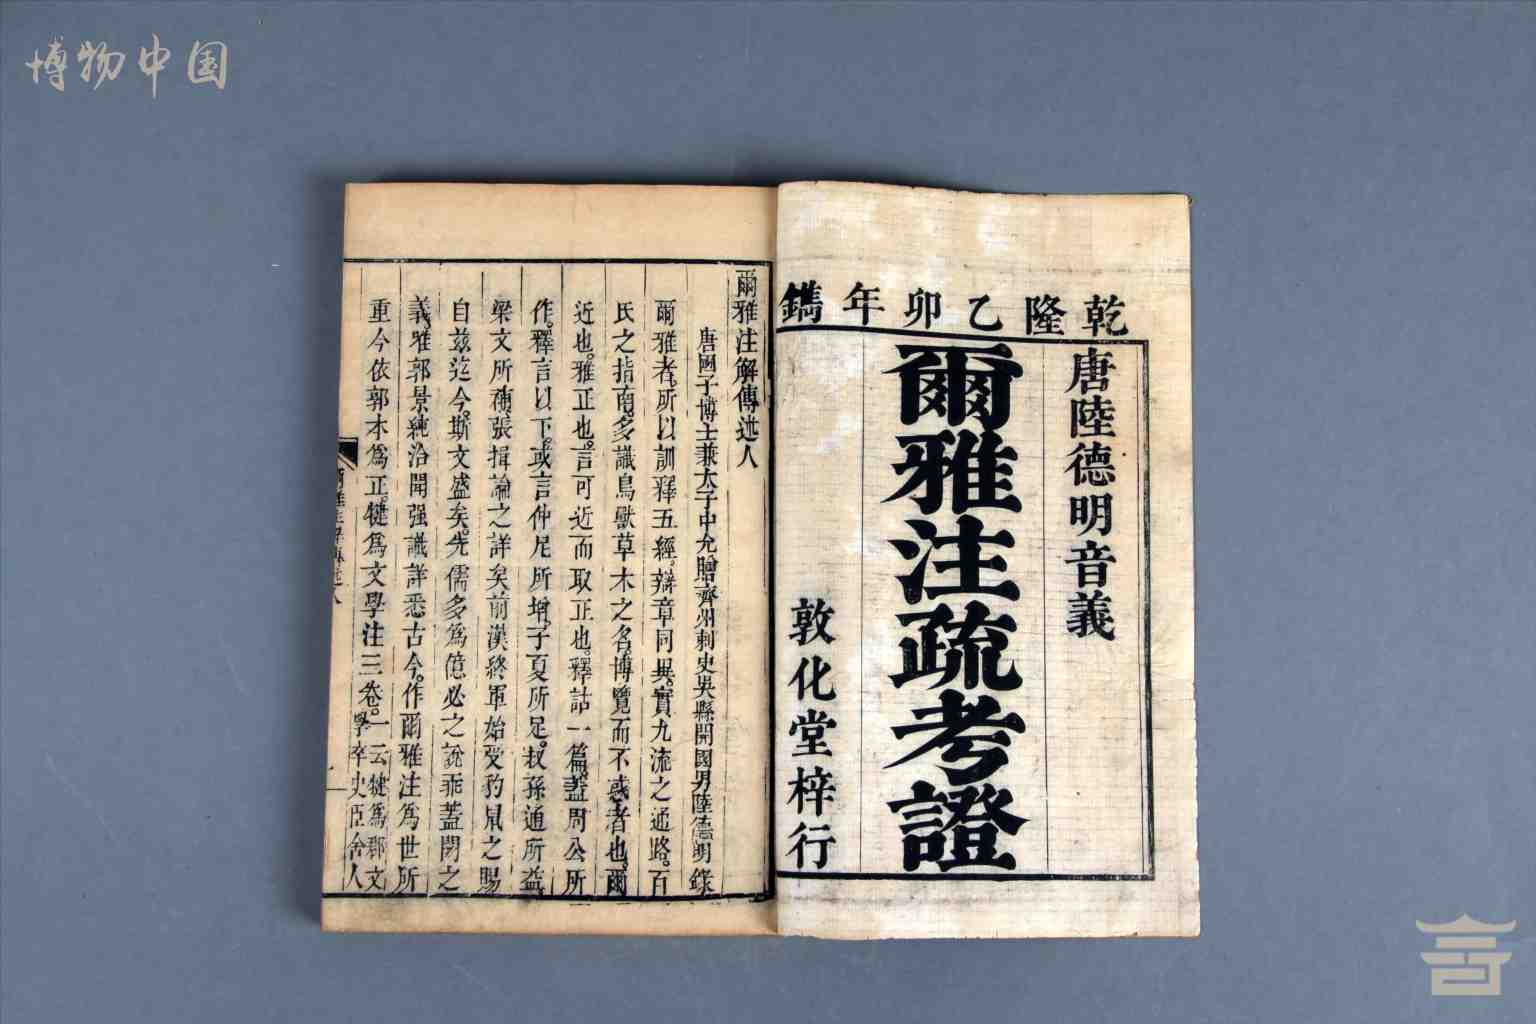 博物中国
乾隆乙卯年鐫
唐陸德明音義
爾雅注疏考證
敦化堂梓行
爾雅注解傳述人
唐國子博士兼太子中允贈齊州刺史吳縣開國男陸德明錄
爾雅者所以訓釋五經辯章同異實九流之通路百
氏之指南多識鳥獸草木之名博覽而不惑者也爾
近也雅正也言可近而取正也釋詁一篇蓋周公所
作釋言以下或言仲尼所增子夏所足叔孫通所益
梁文所補張揖論之詳矣前漢終軍始受豹鼠之賜
自茲迄今斯文盛矣先儒多為億必之說乖蓋闕之
義雅郭景純洽聞强識詳悉古今作爾雅注為世所
重今依郭本為正犍為文學注三卷一云犍為郡文
學卒史臣舍人
爾雅注解傳述人